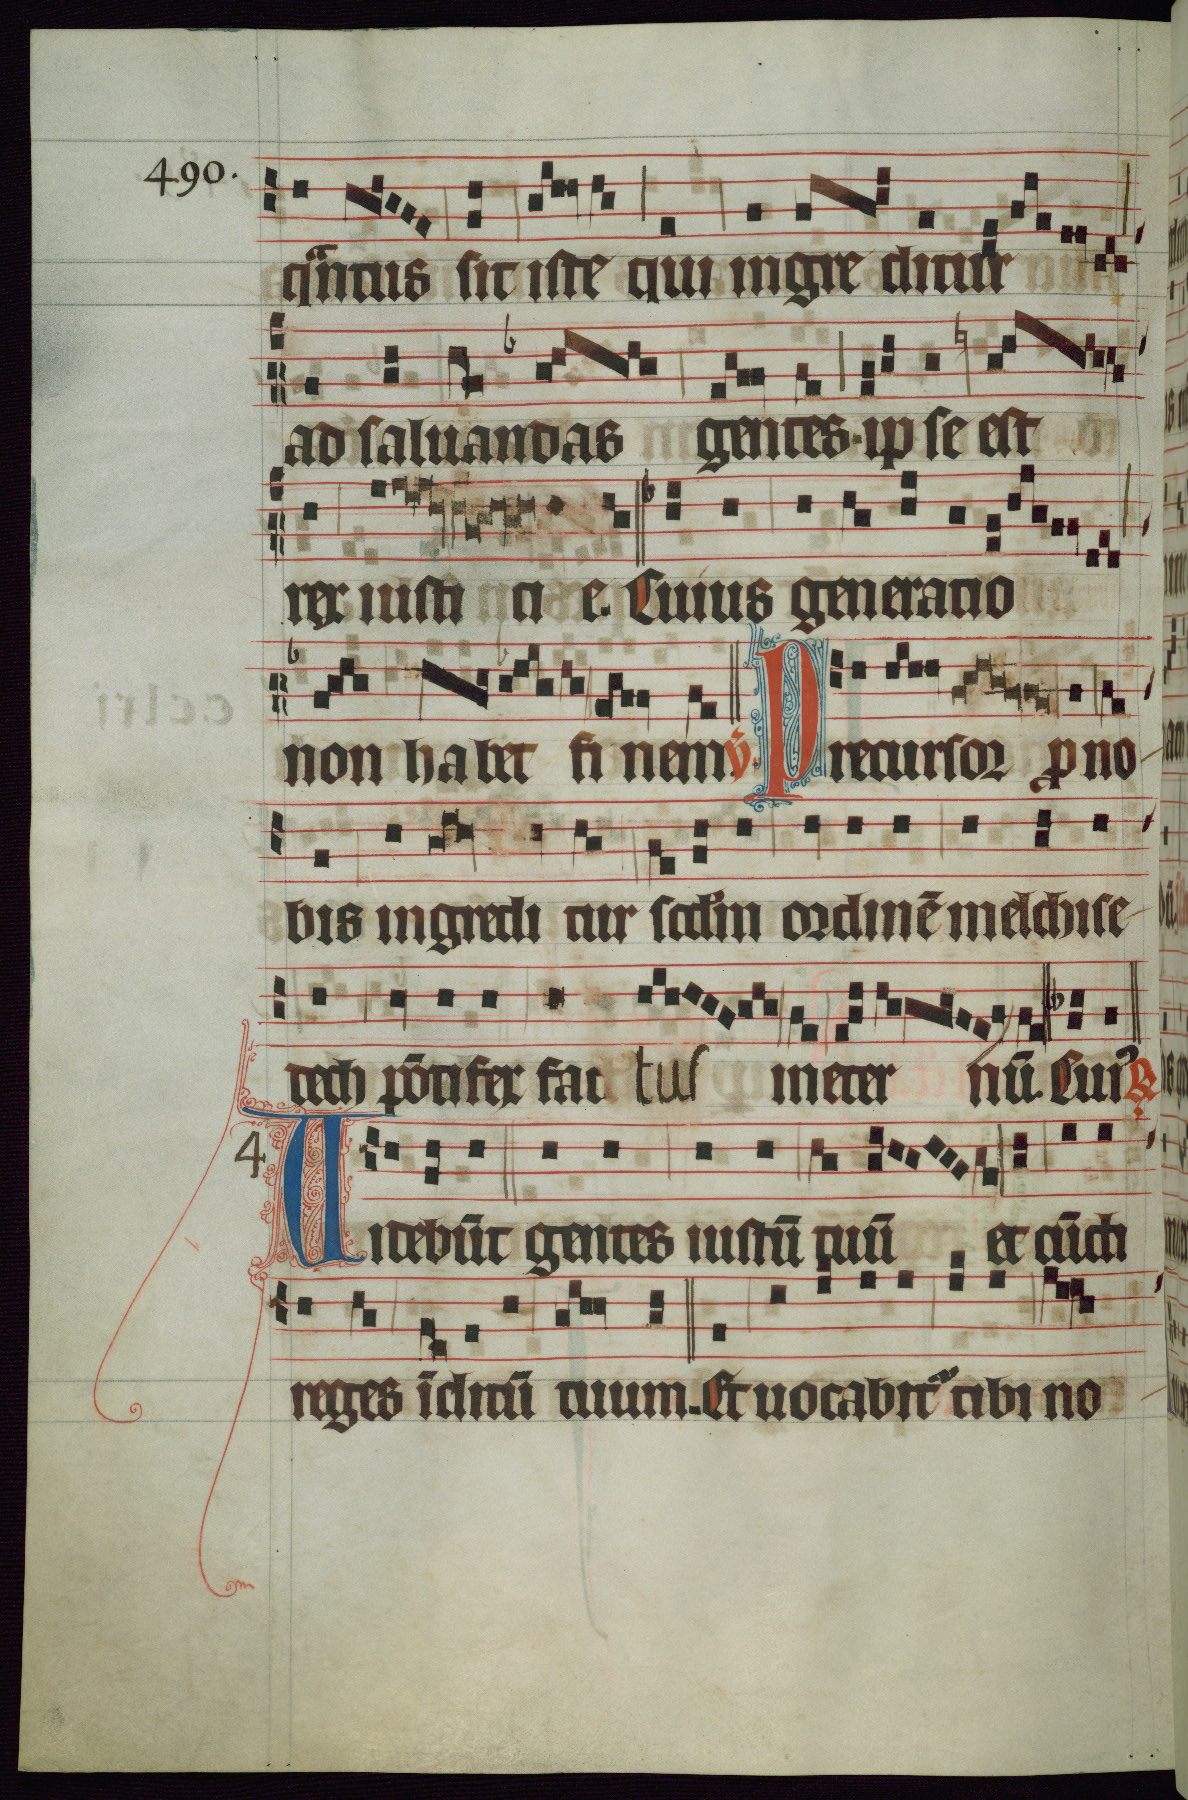 490.
qñtus sit iste qui ingre ditur
ad saluandas gentes. ip se est
rex iusti ti e. Cuius generatio
non habet fi nem ℣. Precursor ꝓ no
bis ingredi tur scdm ordinē melchise
tech põtifex fac tus in eter nū. Cuiꝰ ℟
4 Uidebūt gentes iustū tuū et cūcti
reges īclitū tuum. Et uocabitʳ tibi no